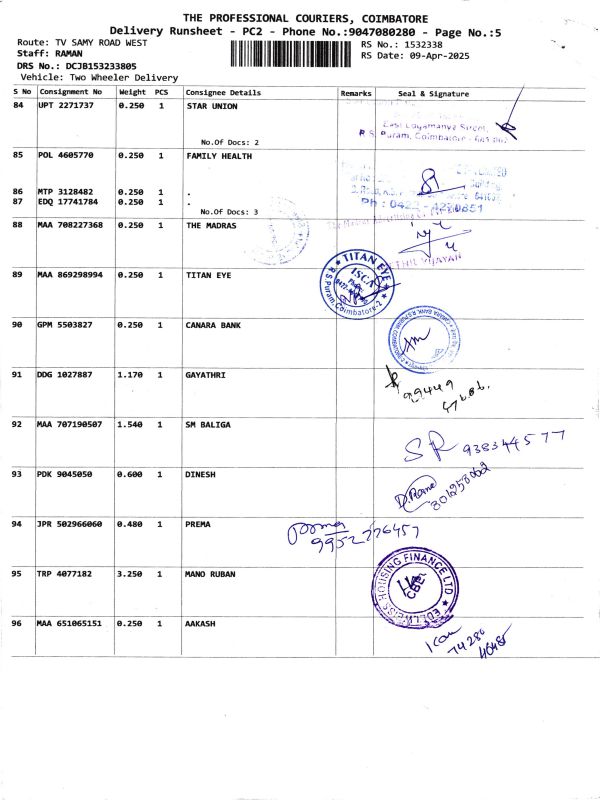 THE PROFESSIONAL COURIERS, COIMBATORE
Delivery Runsheet - PC2 - Phone No.:9047080280 - Page No.:5
Route: TV SAMY ROAD WEST
RS No.: 1532338
Staff: RAMAN
RS Date: 09-Apr-2025
DRS No.: DCJB153233805
Vehicle: Two Wheeler Delivery
S No Consignment No Weight PCS Consignee Details Remarks Seal & Signature
84 UPT 2271737 0.250 1 STAR UNION
East Logamanya Street,
R.S. Puram, Coimbatore
No.Of Docs: 2
85 POL 4605770 0.250 1 FAMILY HEALTH
86 MTP 3128482 0.250 1 .
87 EDQ 17741784 0.250 1 .
Ph : 0422 - 4270851
No.Of Docs: 3
88 MAA 708227368 0.250 1 THE MADRAS
89 MAA 869298994 0.250 1 TITAN EYE
TITAN EYE
ISCA
R.S.Puram, Coimbatore-2
90 GPM 5503827 0.250 1 CANARA BANK
91 DDG 1027887 1.170 1 GAYATHRI
92 MAA 707190507 1.540 1 SM BALIGA
SR 938344577
93 PDK 9045050 0.600 1 DINESH
94 JPR 502966060 0.480 1 PREMA
9952776457
95 TRP 4077182 3.250 1 MANO RUBAN
EDELWEISS HOUSING FINANCE LTD
CBE
96 MAA 651065151 0.250 1 AAKASH
74286
46485